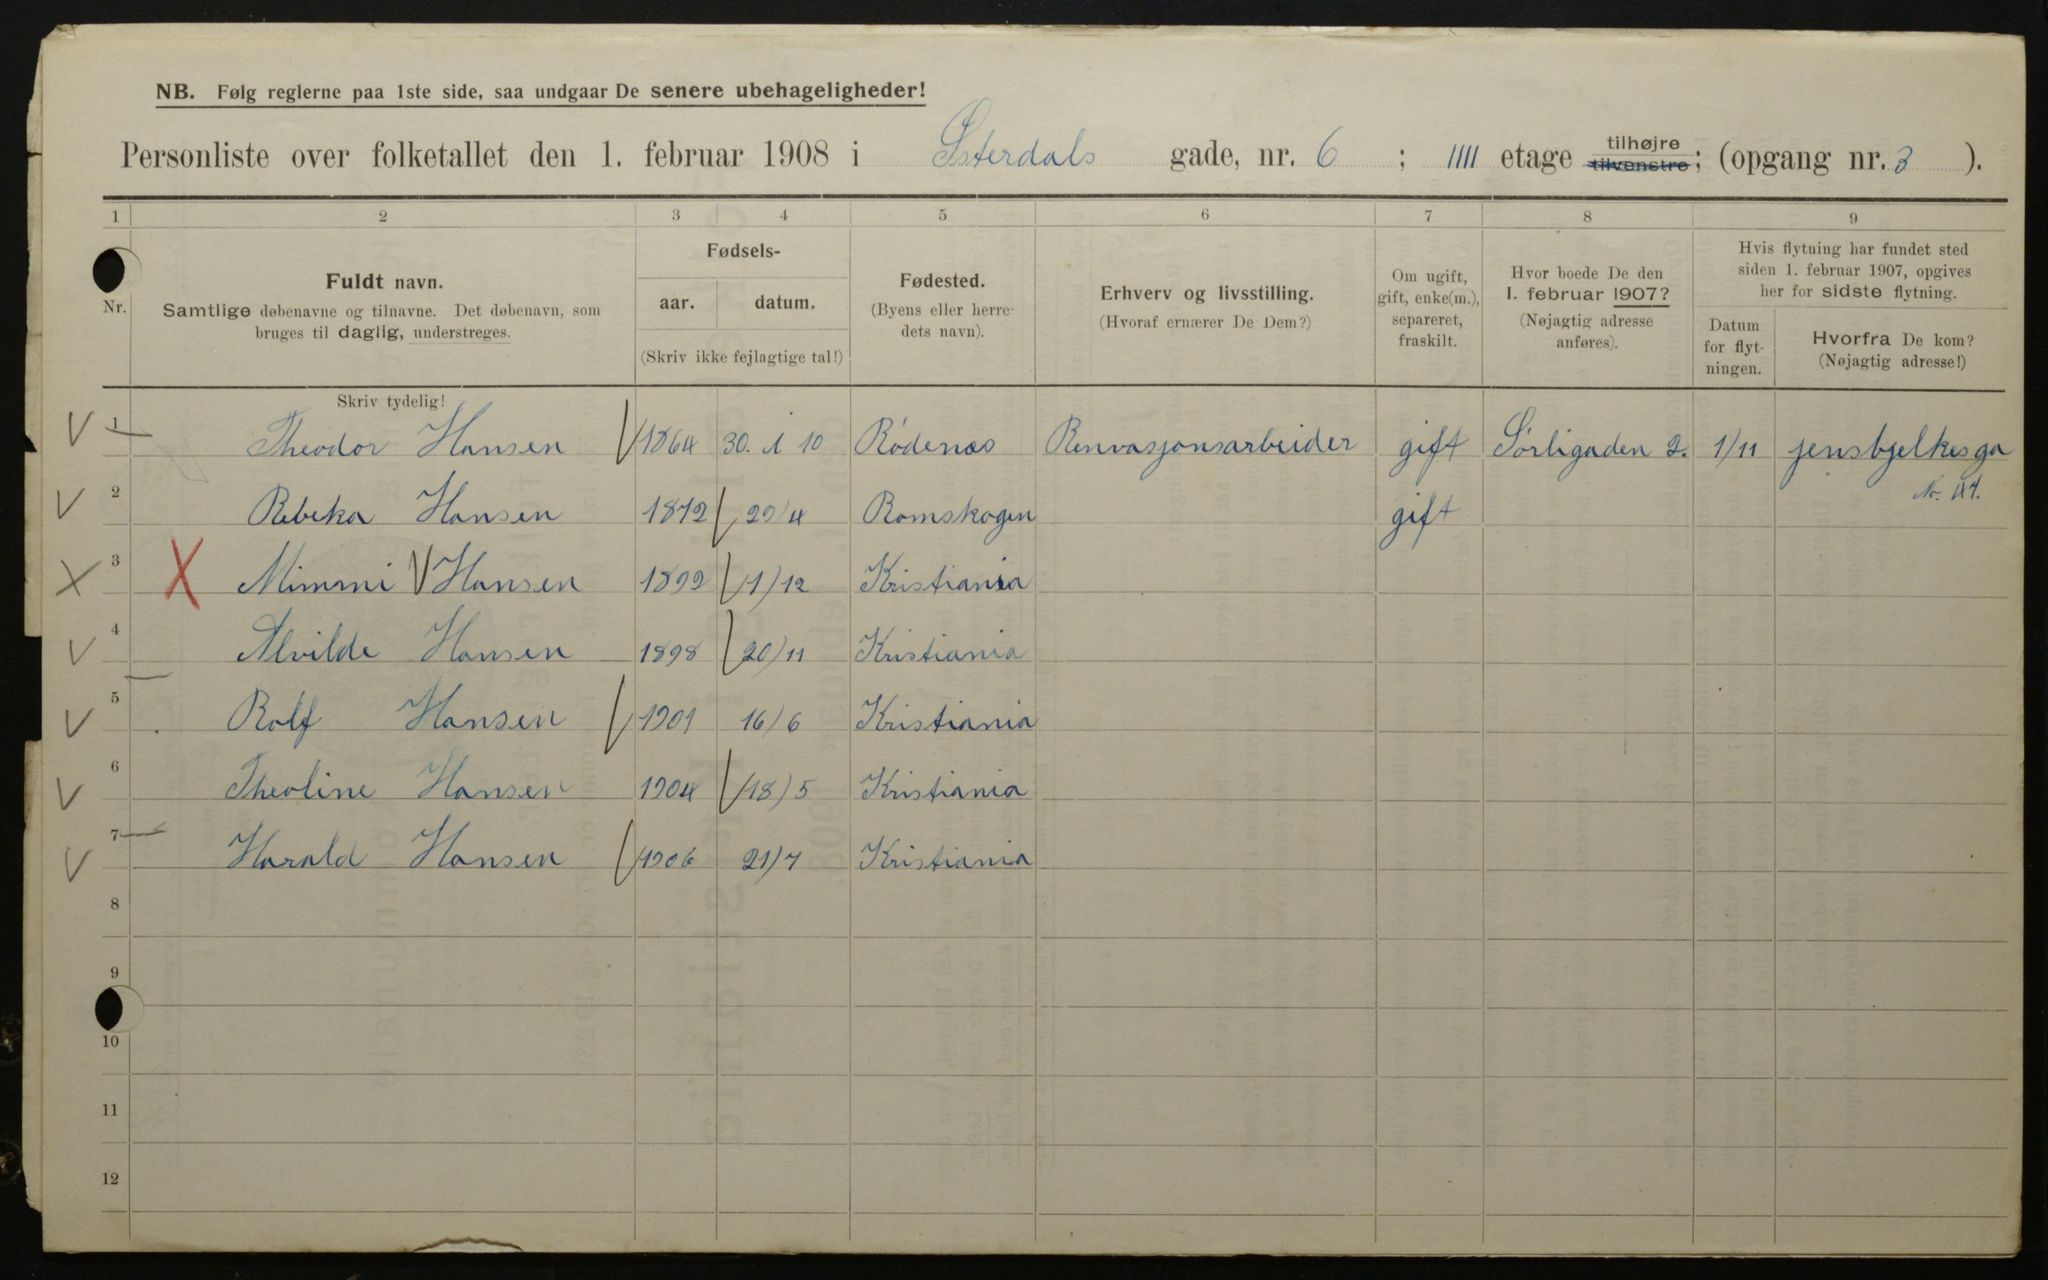 NB. Følg reglerne paa 1ste side, saa undgaar De senere ubehageligheder!
Personliste over folketallet den 1. februar 1908 i Østerdals gade, nr. 6 ; IIII etage tilhøjre tilvenstre; (opgang nr. 3 ).
1 2 3 4 5 6 7 8 9
Nr.
Fuldt navn.
Samtlige døbenavne og tilnavne. Det døbenavn, som
bruges til daglig, understreges.
Skriv tydelig!
Fødsels-
aar. datum.
(Skriv ikke fejlagtige tal!)
Fødested.
(Byens eller herre-
dets navn).
Erhverv og livsstilling.
(Hvoraf ernærer De Dem?)
Om ugift,
gift, enke(m.),
separeret,
fraskilt.
Hvor boede De den
1. februar 1907?
(Nøjagtig adresse
anføres).
Hvis flytning har fundet sted
siden 1. februar 1907, opgives
her for sidste flytning.
Datum
for flyt-
ningen.
Hvorfra De kom?
(Nøjagtig adresse!)
1 Theodor Hansen 1864 30. 10 Rødenæs Renvasjonsarbeider gift Sørligaden 2. 1/11 jensbjelkesga
Nr. 47.
2 Rebeka Hansen 1872 29/4 Romskogen gift
3 Mimmi Hansen 1899 1/12 Kristiania
4 Alvilde Hansen 1898 20/11 Kristiania
5 Rolf Hansen 1901 16/6 Kristiania
6 Theoline Hansen 1904 18/5 Kristiania
7 Harald Hansen 1906 21/7 Kristiania
8
9
10
11
12